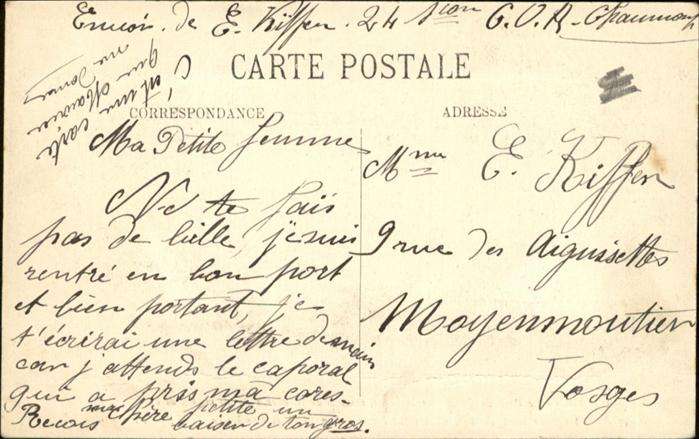 Envoi de E. Kiffer 24 Sion C.O.A. Chaumont
CARTE POSTALE
c'est une carte
que Maurice
ma donné
CORRESPONDANCE
Ma Petite femme
Ne te fais
pas de bille, je suis
rentré en bon port
et bien portant, je
t'écrirai une lettre demain
car j'attends le caporal
qui a pris ma cares-
Recois ma chère petite un
baiser de ton gros.
ADRESSE
Mme E. Kiffer
9 rue des Aiguisettes
Moyenmoutier
Vosges